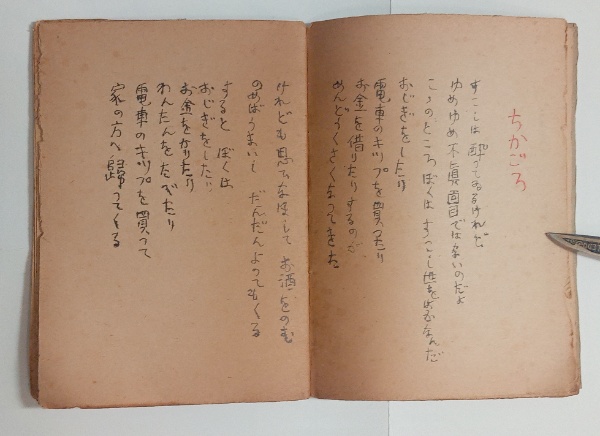 ちかごろ
すこしは酔つてゐるけれど
ゆめゆめ不真面目ではないのだよ
こゝのところぼくは すこし
おじぎをしたり
電車のキップを買つたり
お金を借りたりするのが
めんどうくさくなつてきた
けれども思ひなほして お酒をのむ
のめばうまいし だんだんよつてもくる
すると ぼくは
おじぎをしたり
お金をかりたり
わんたんをたべたり
電車のキップを買つて
家の方へ歸つてくる